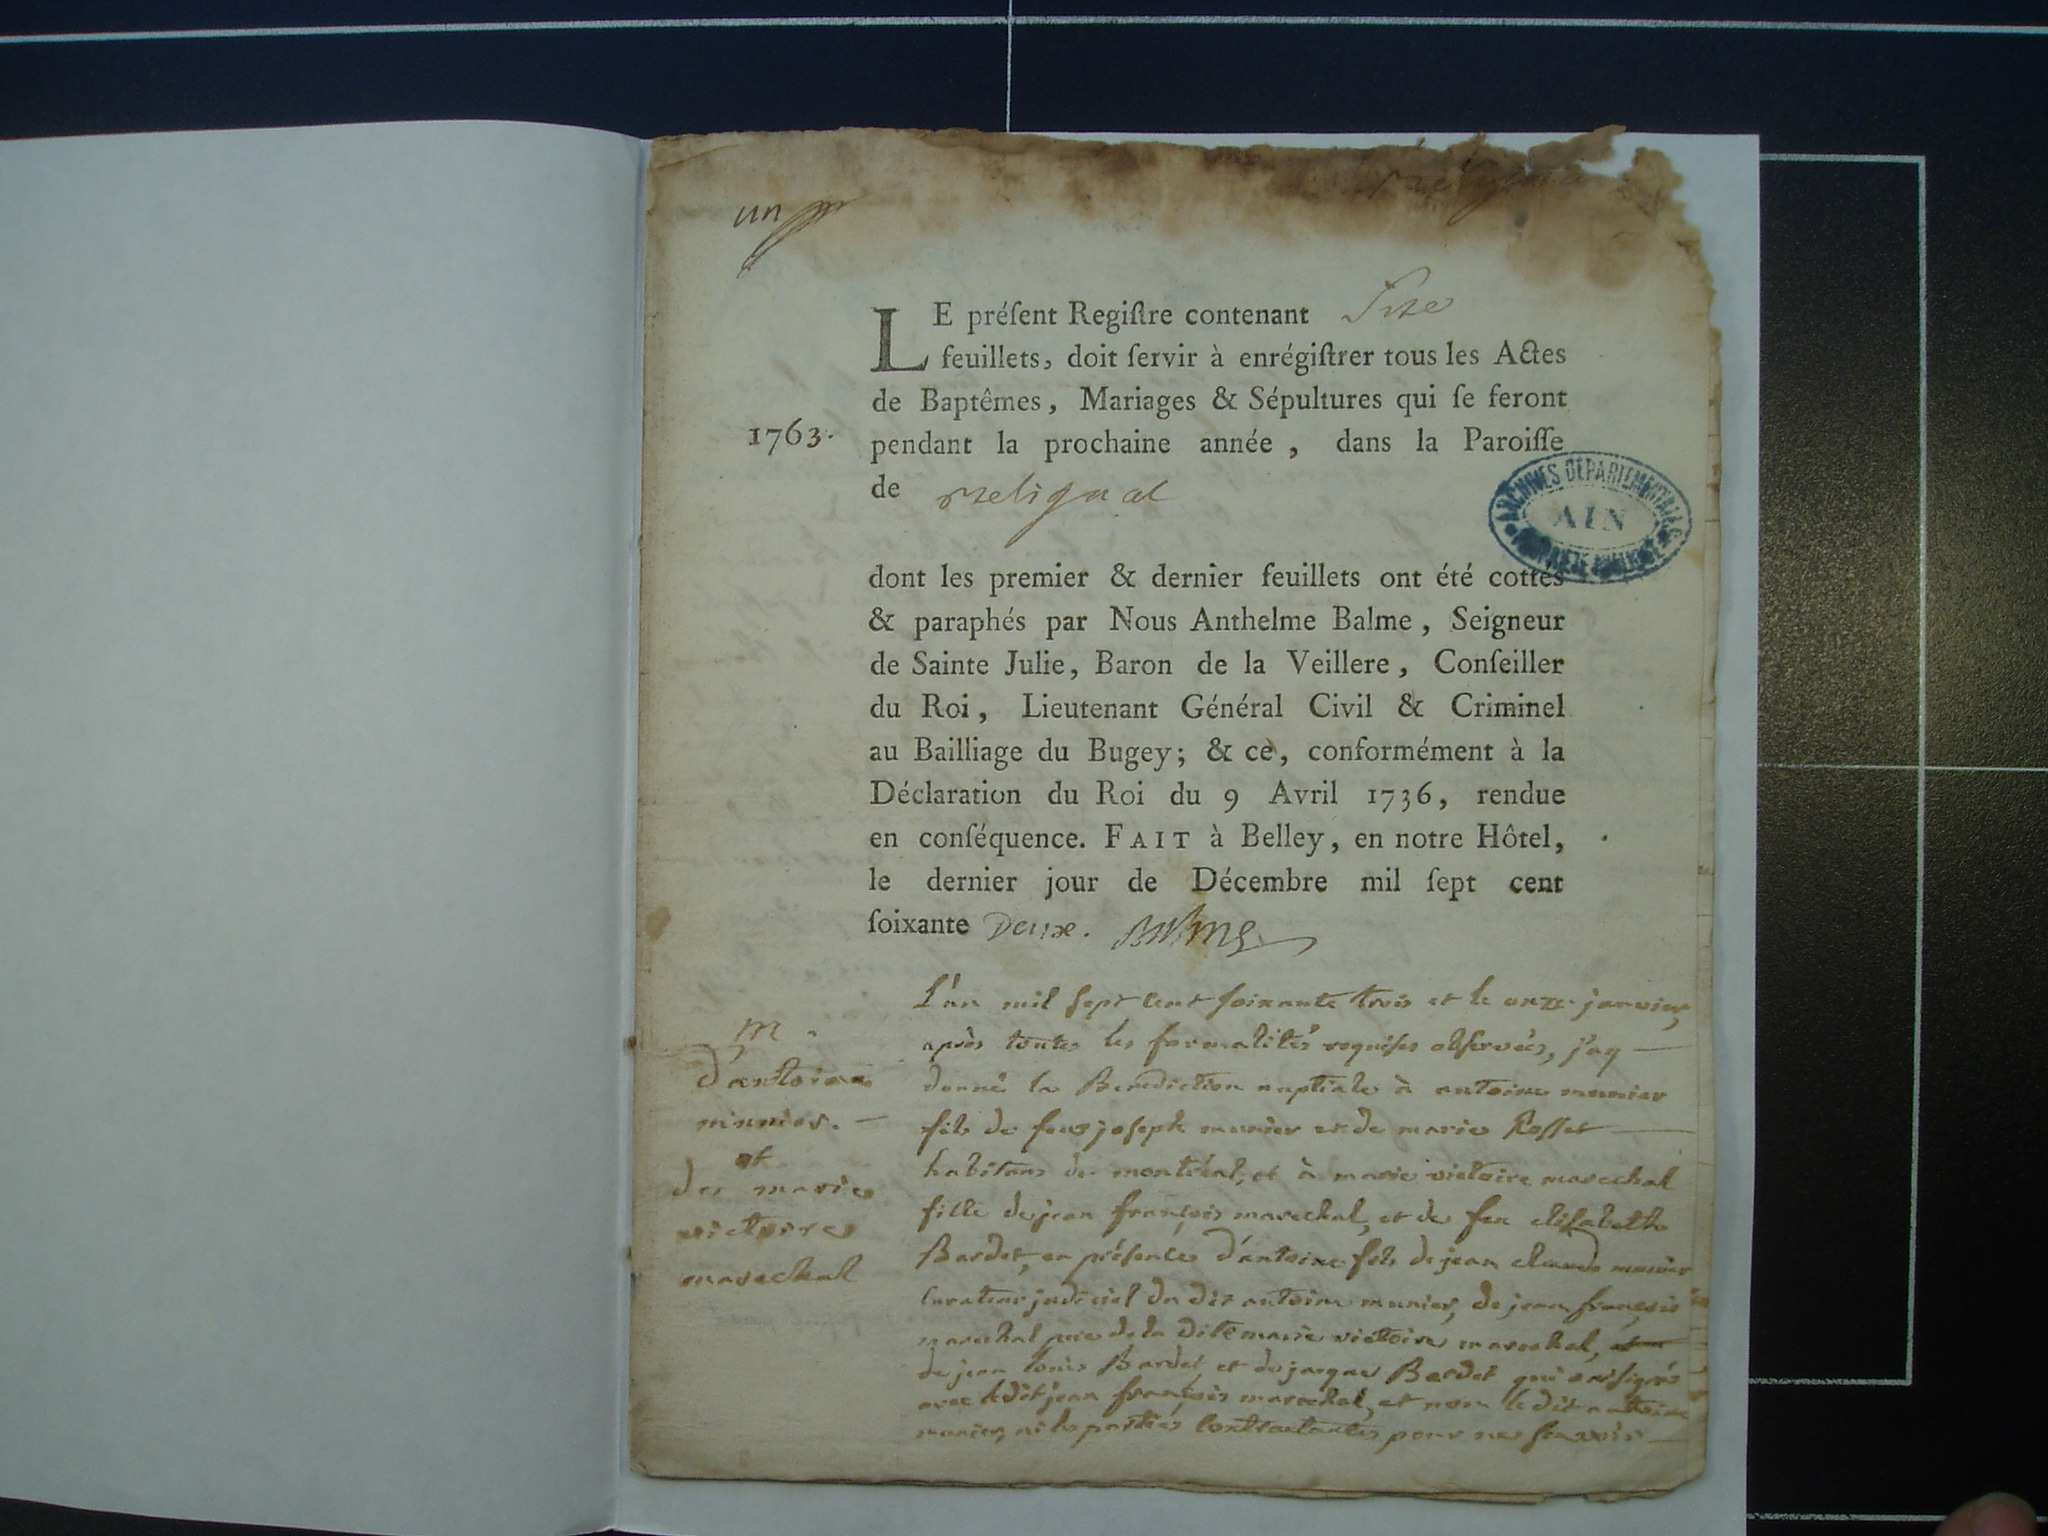 un
LE préſent Regiſtre contenant Size
feuillets, doit ſervir à enrégiſtrer tous les Actes
de Baptêmes, Mariages & Sépultures qui ſe feront
1763. pendant la prochaine année, dans la Paroiſſe
de Relignat
ARCHIVES DÉPARTEMENTALES
AIN
dont les premier & dernier feuillets ont été cottés
& paraphés par Nous Anthelme Balme, Seigneur
de Sainte Julie, Baron de la Veillere, Conſeiller
du Roi, Lieutenant Général Civil & Criminel
au Bailliage du Bugey; & ce, conformément à la
Déclaration du Roi du 9 Avril 1736, rendue
en conſéquence. FAIT à Belley, en notre Hôtel,
le dernier jour de Décembre mil ſept cent
ſoixante Deux. Balme
m.
d'antoine
munier.
et
de marie
victoire
marechal
L'an mil sept cent soixante trois et le onze janvier,
après toutes les formalités requises observées, j'ay
donné la Benediction nuptiale à antoine munier
fils de feu joseph munier et de marie Rosset
habitans de montréal, et à marie victoire marechal
fille de jean françois marechal, et de feu elisabeth
Bardet, en présence d'antoine fils de jean claude munier
curateur judiciel du dit antoine munier, de jean françois
marechal pere de la dite marie victoire marechal,
de jean louis Bardet et de jacque Bardet qui ont signés
avec le dit jean françois marechal, et non le dit antoine
munier, ni les parties contractantes pour ne sçavoir